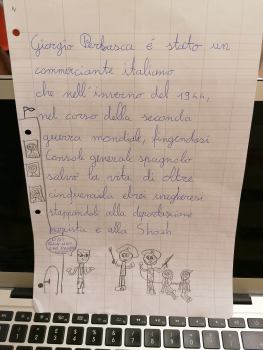 Giorgio Perlasca é stato un
commerciante italiano
che nell'inverno del 1944,
nel corso della seconda
guerra mondiale, fingendosi
console generale spagnolo
salvò la vita di oltre
cinquemila ebrei ungheresi
strappandoli alla deportazione
nazista e alla Shoah